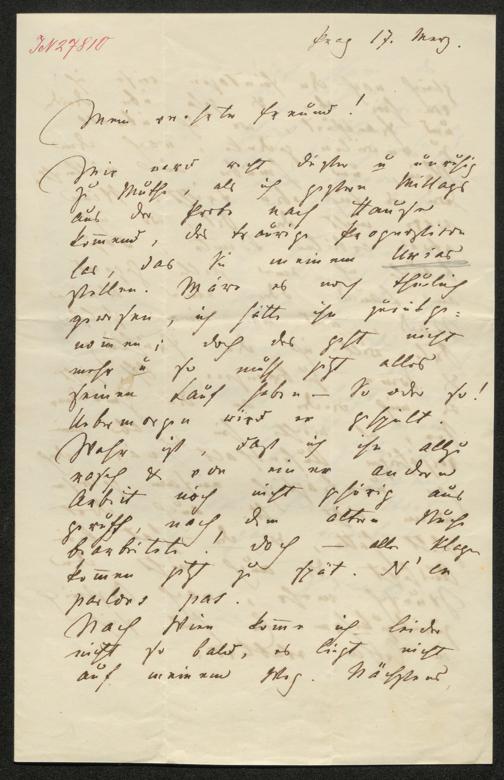 IN 27810
Prag 17. Merz.
Mein verehrter Freund!
Mir ward recht düster u unruhig
zu Muthe, als ich gestern Mittags
aus der Probe nach Hause
kommend, das traurige Prognostikon
las, das Sie meinem Urias
stellen. Wäre es noch thunlich
gewesen, ich hätte ihn zurückge-
nommen; doch das geht nicht
mehr u so muß jetzt alles
seinen Lauf haben – So oder so!
Uebermorgen wird er gespielt.
Wahr ist, daß ich ihn allzu
rasch & von einer andern
Arbeit noch nicht gehörig aus
geruht, nach dem alten
bearbeitete! Doch – alle Klagen
kommen jetzt zu spät. N'en
parlons pas.
Nach Wien komme ich leider
nicht so bald, es liegt nicht
auf meinem Weg. Nächstens